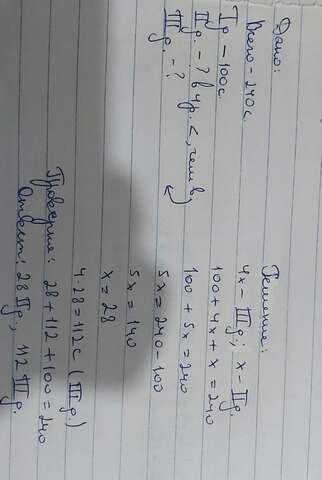 Дано:
Всего - 240с.
I д - 100с.
II д. - ? в 4 р. <, чем в
III д. - ?
Решение:
4x - III д.; x - II д.
100 + 4x + x = 240
100 + 5x = 240
5x = 240 - 100
5x = 140
x = 28
4 · 28 = 112 с (III д)
Проверка: 28 + 112 + 100 = 240
Ответ: 28 II д., 112 III д.